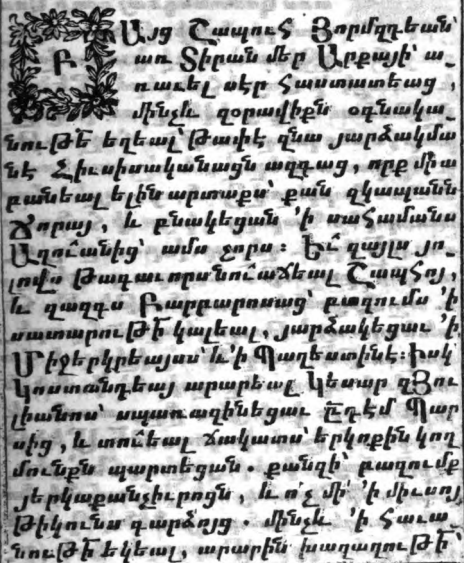 ԲԱյց Շապուհ Յորմզդեան՝
առ Տիրան մեր Արքայի՝ ա_
ռաւել սէր հաստատեաց,
մինչև զօրավիքն օգնակա_
նութ՟ե եղեալ՝ թափէ զնա յարձակմա
նէ Հիւսիսականացն ազգաց, որք միա
բանեալ ելին արտաքս՝ քան զկապանն
Ճորայ, և բնակեցան ՚ի սահմանս
Աղու՟անից՝ ամս չորս։ Եւ՟ զայլս յո_
լովս թագաւորս նու՟աճեալ Շապհոյ,
և զազգս Բարբարոսաց՝ բազումս ՚ի
սատարութի՟ կալեալ, յարձակեցաւ ՚ի
Միջերկրեայս՝ և ՚ի Պաղեստինէ։ Իսկ
Կոստանդեայ արարեալ Կեսար զՅու
լիանոս՝ սպառազինեցաւ ընդ՟դէմ Պար
սից, և տու՟եալ ճակատս՝ երկոքին կող
մունքն պարտեցան. քանզի՝ բազումք
յերկաքանչիւրոցն, և ո՛չ մի՝ ՚ի միւսոյ
թիկունս դարձոյց. մինչև ՚ի հաւա_
նութի՟ եկեալ, արարին խաղաղութի՟՝